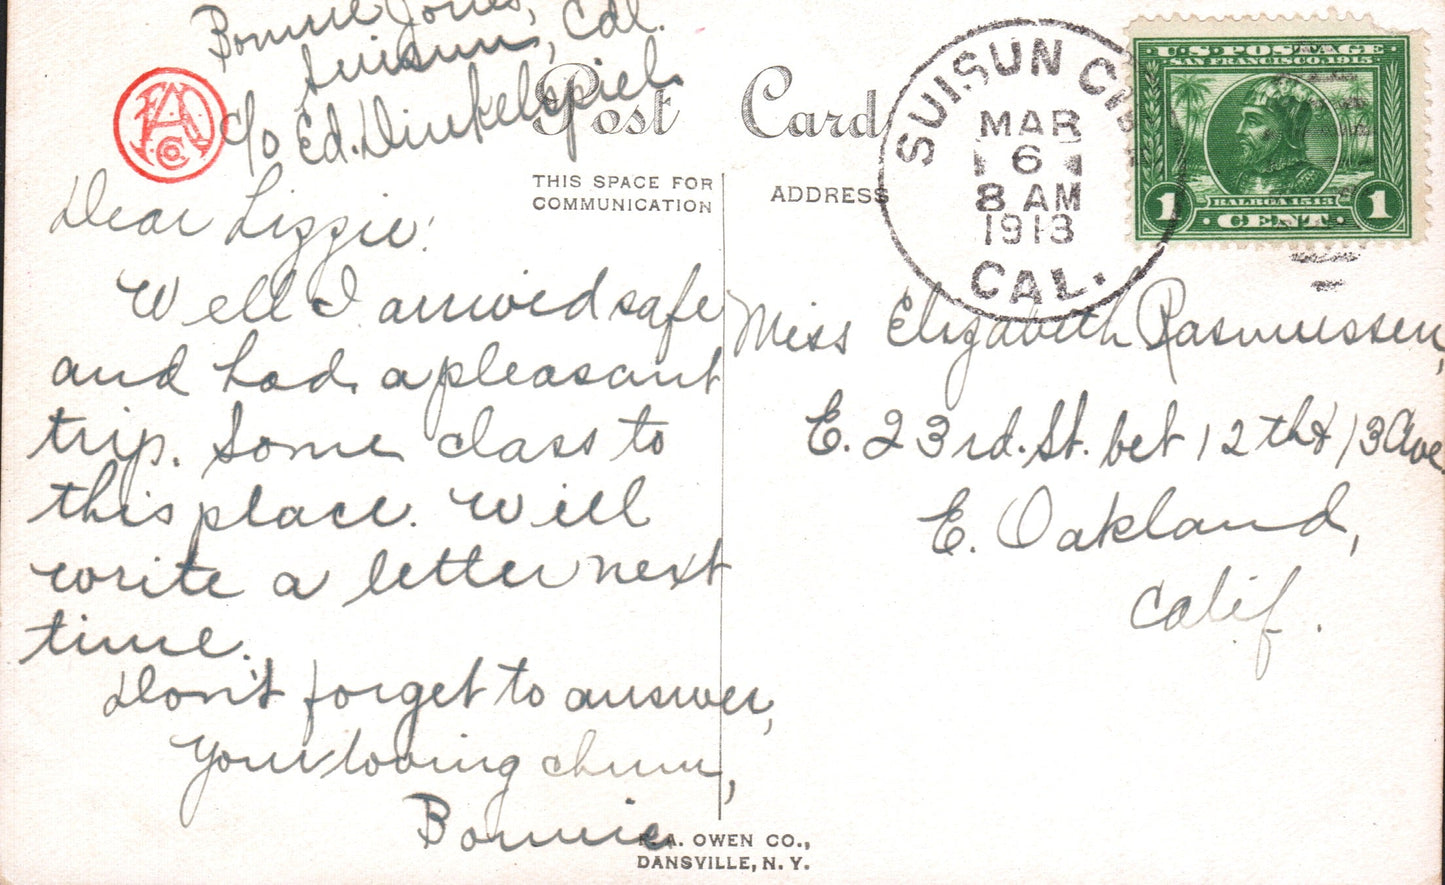 Bonnie Jones,
Suisun, Cal.
c/o Ed. Dinkelspiel
Post Card
THIS SPACE FOR
COMMUNICATION
ADDRESS
Dear Lizzie:
Well I arrived safe
and had a pleasant
trip. Some class to
this place. Will
write a letter next
time.
Don't forget to answer,
Your loving chum,
Bonnie
F.A. OWEN CO.,
DANSVILLE, N.Y.
SUISUN CITY
MAR
6
8 AM
1913
CAL.
U.S. POSTAGE
SAN FRANCISCO, 1915
BALBOA 1513
1 CENT 1
Miss Elizabeth Rasmussen,
E. 23rd. St. bet 12th & 13 Ave
E. Oakland,
Calif.
FAO
Co.